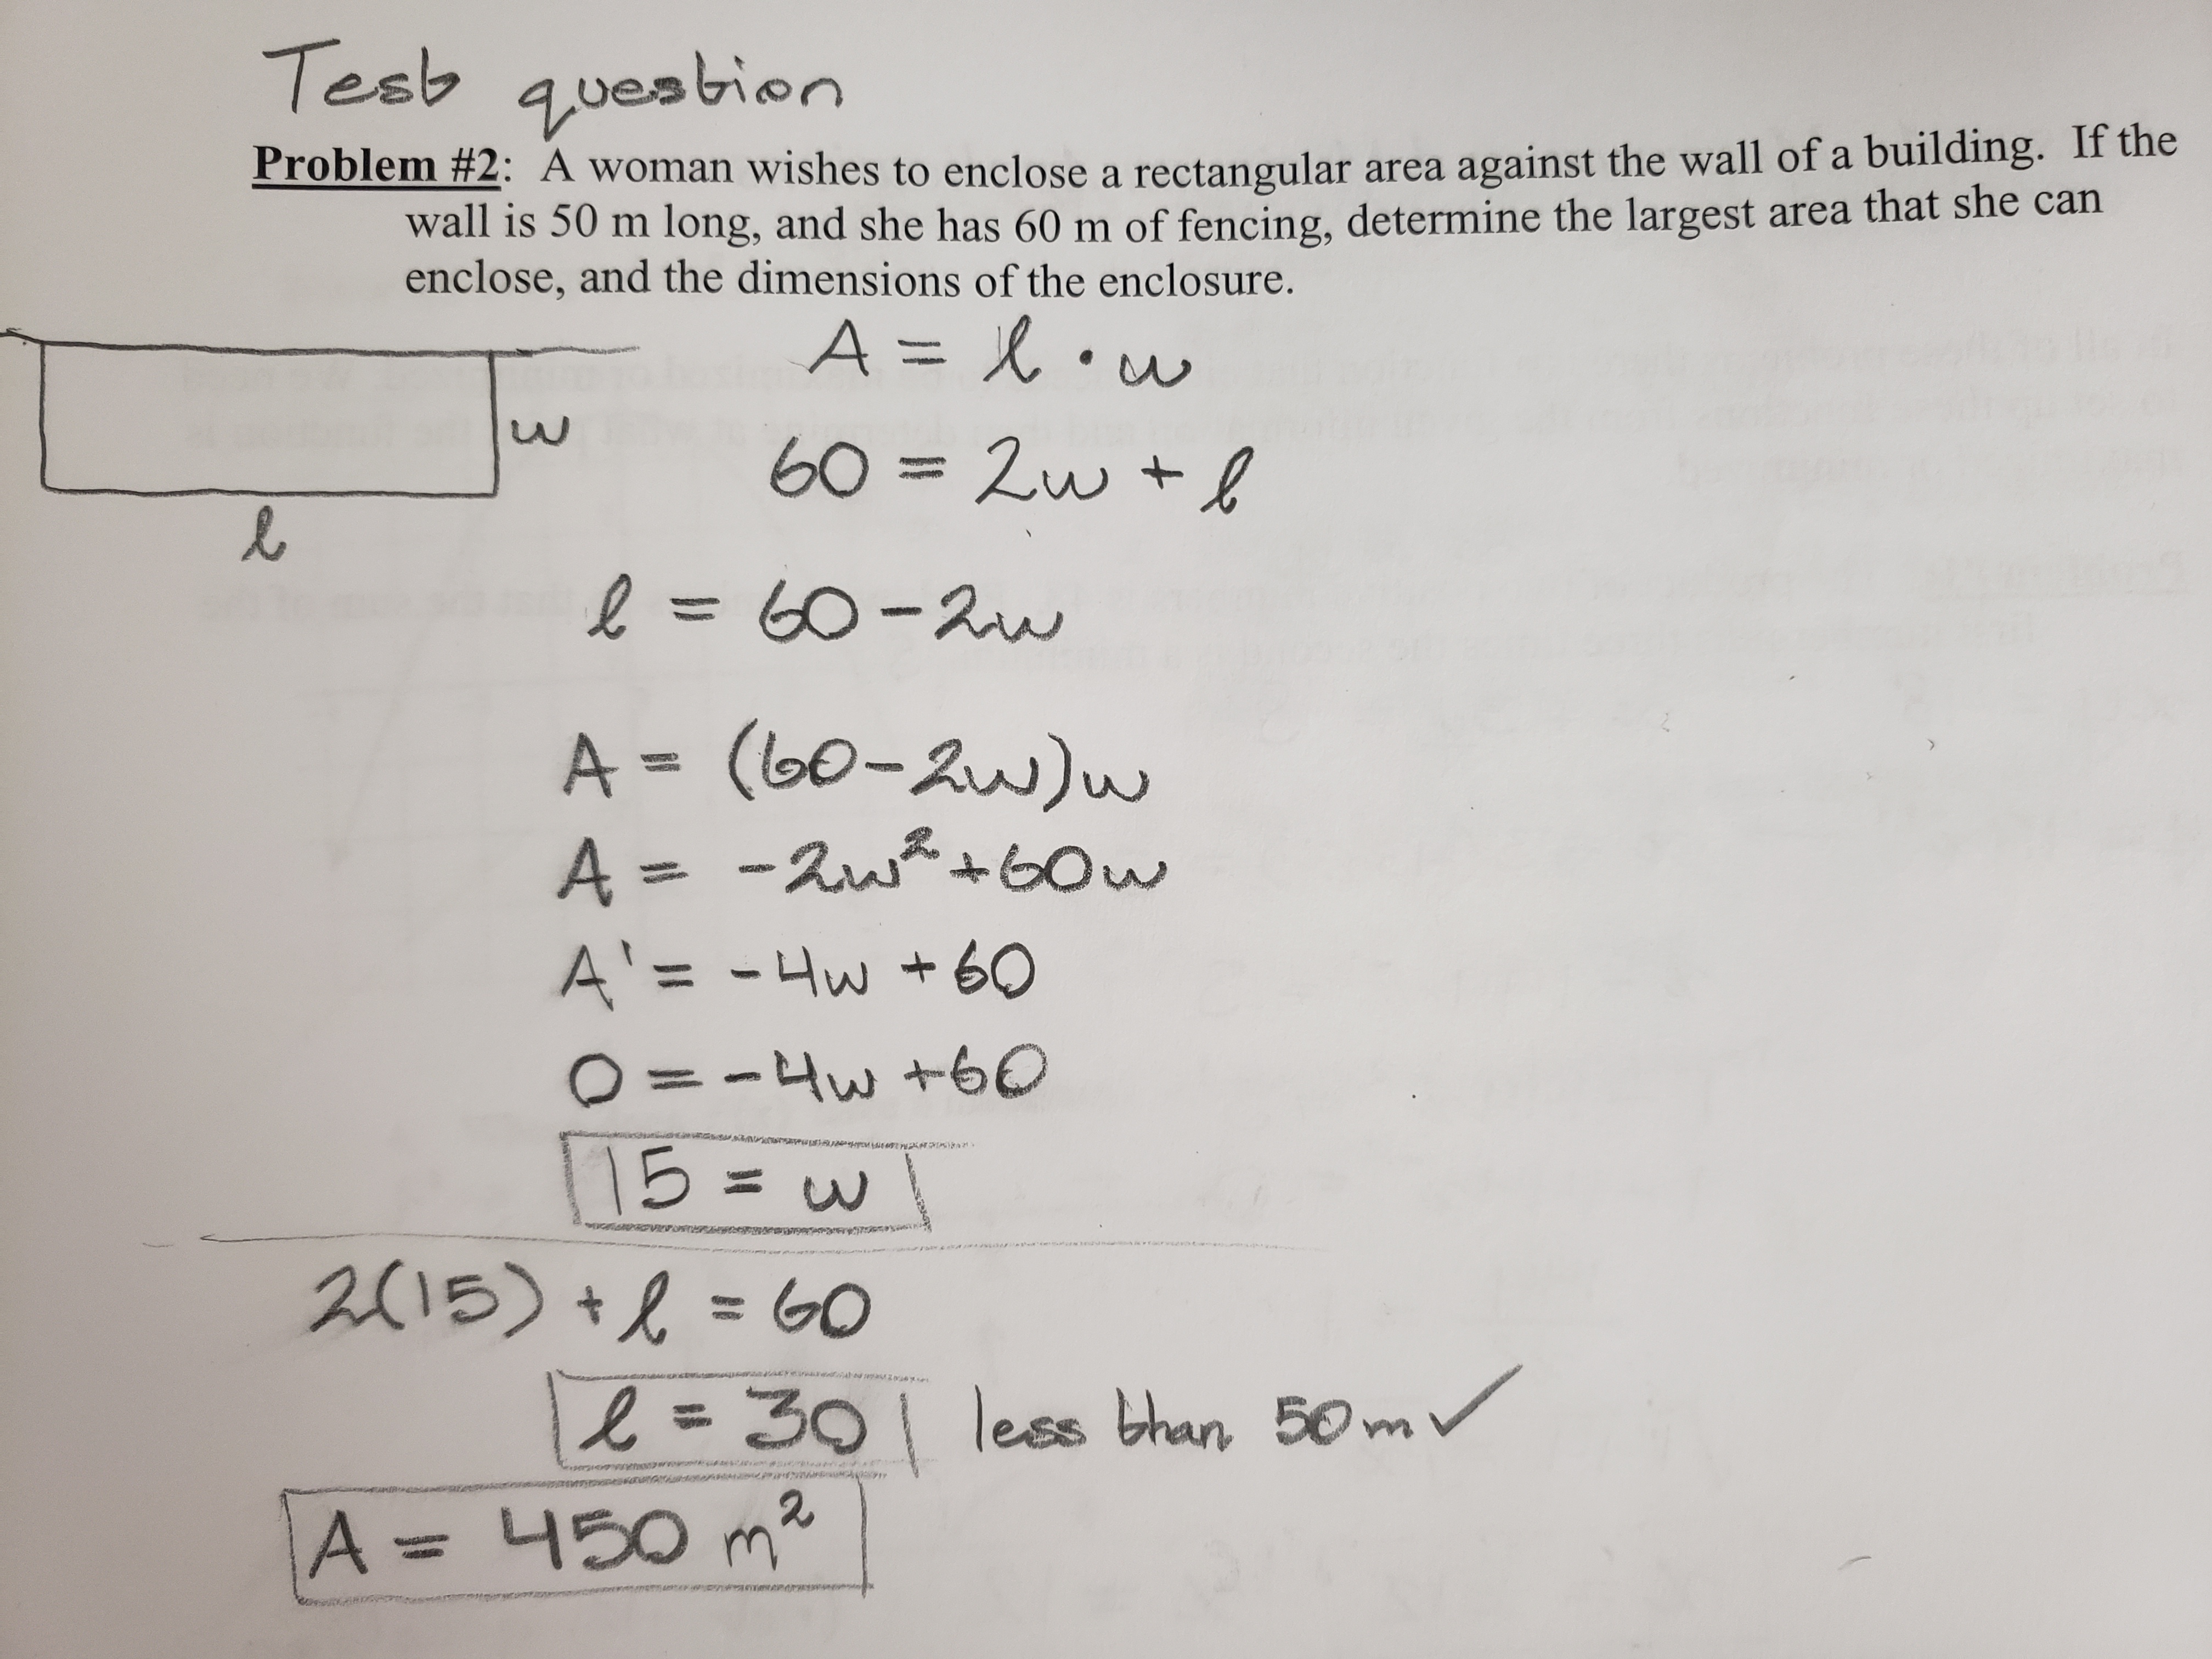 Test question
Problem #2: A woman wishes to enclose a rectangular area against the wall of a building. If the
wall is 50 m long, and she has 60 m of fencing, determine the largest area that she can
enclose, and the dimensions of the enclosure.
A = l · w
w
60 = 2w + l
l
l = 60 - 2w
A = (60-2w)w
A = -2w² + 60w
A' = -4w + 60
0 = -4w + 60
15 = w
2(15) + l = 60
l = 30 less than 50m ✓
A = 450 m²